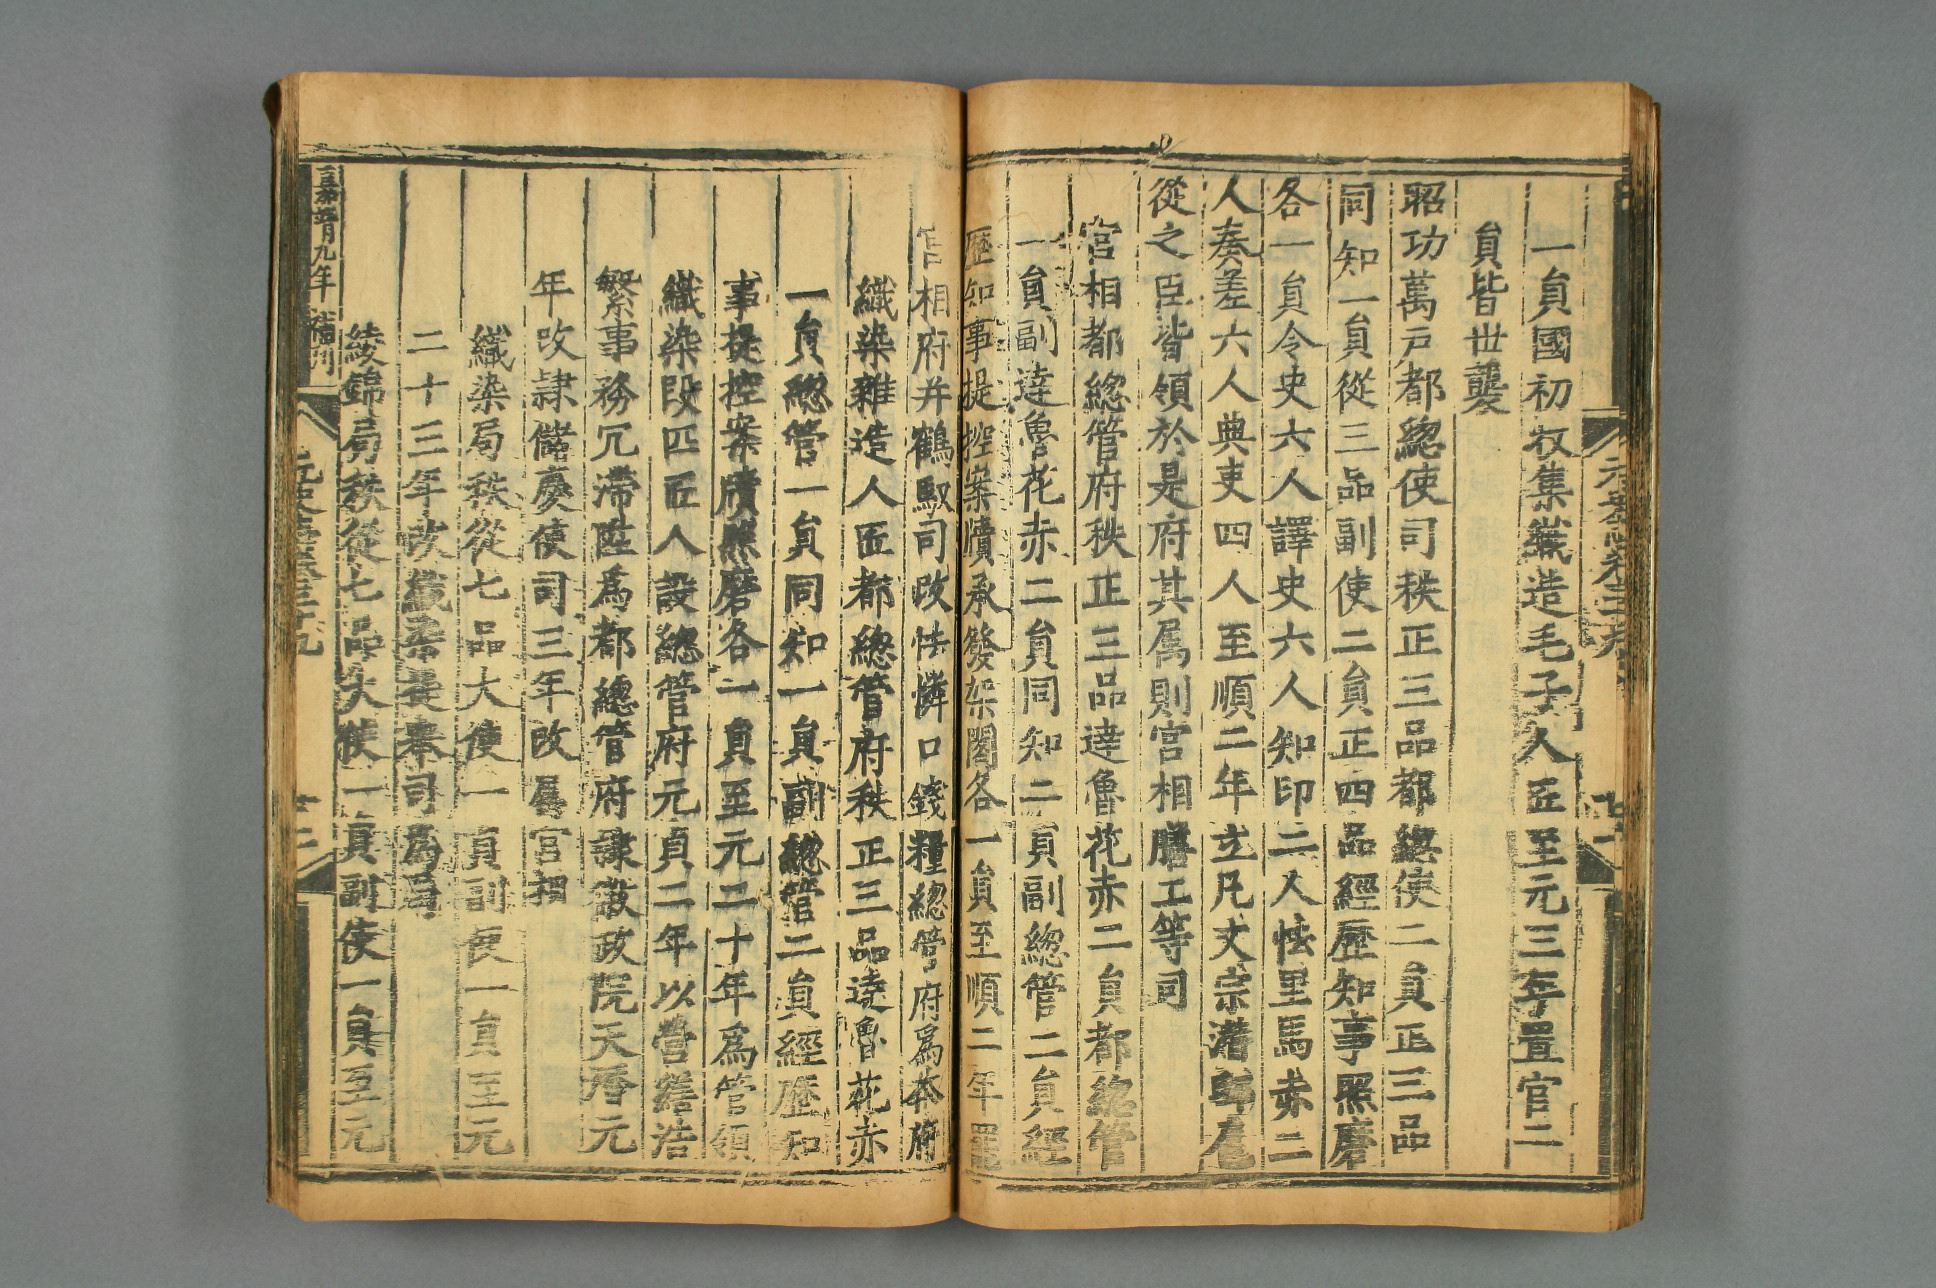 一貟國初收集織造毛子人匠至元三年置官二
貟皆世襲
昭功萬戸都緫使司秩正三品都緫使二貟正三品
同知一貟從三品副使二貟正四品經歷知事照磨
各一貟令史六人譯史六人知印二人怯里馬赤二
人奏差六人典吏四人至順二年立凡文宗潛邸扈
從之臣皆領於是府其属則宫相膳工等司
宫相都緫管府秩正三品達魯花赤二貟都緫管
一貟副達魯花赤二貟同知二貟副緫管二貟經
歷知事提控案牘承發架閣各一貟至順二年罷
宫相府并鶴馭司改怯憐口錢糧緫管府爲本府
織染雜造人匠都緫管府秩正三品達魯花赤
一貟緫管一貟同知一貟副緫管二貟經歷知
事提控案牘照磨各一貟至元二十年爲管領
織染段匹匠人設緫管府元貞二年以營繕浩
繁事務冗滯陞爲都緫管府隷徽政院天曆元
年改隷儲慶使司三年改屬宫相
織染局秩從七品大使一貟副使一貟至元
二十三年改織染提舉司爲局
綾錦局秩從七品大使一貟副使一貟至元
嘉靖九年補刊